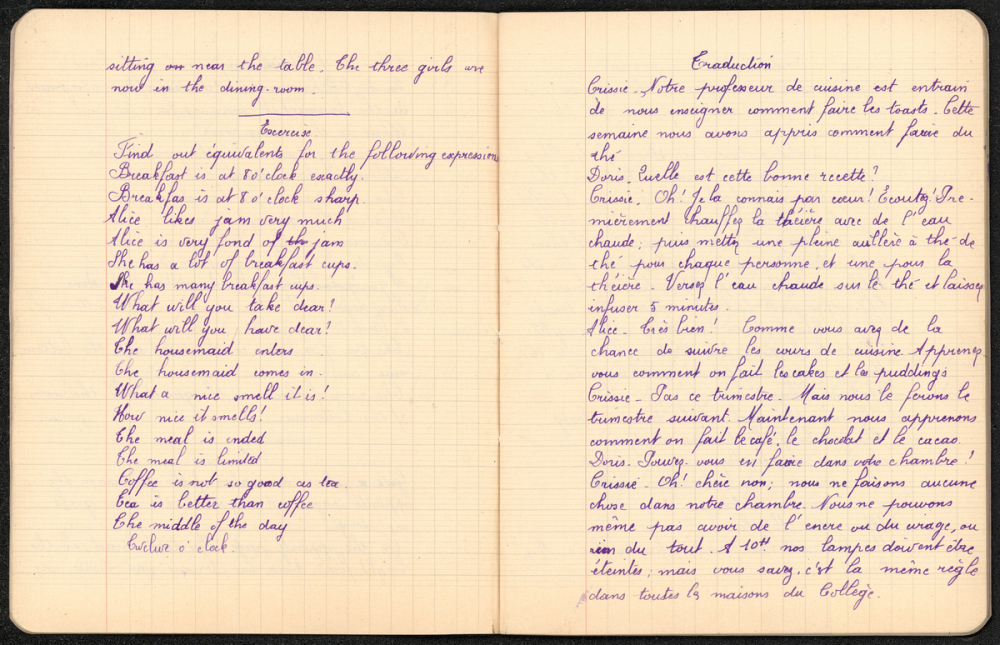 sitting on near the table. The three girls are
now in the dining-room.
Exercise
Find out équivalents for the following expression
Breakfast is at 8 o'clock exactly.
Breakfas is at 8 o'clock sharp.
Alice likes jam very much
Alice is very fond of th jam
She has a lot of breakfast cups.
She has many breakfast cups.
What will you take dear?
What will you have dear?
The housemaid enters
The housemaid comes in.
What a nice smell it is!
How nice it smells!
The meal is ended
The meal is limited
Coffee is not so good as tea.
Tea is better than coffee
The middle of the day
Twelve o'clock.
Traduction
Crissie. Notre professeur de cuisine est entrain
de nous enseigner comment faire les toasts. Cette
semaine nous avons appris comment faire du
thé.
Doris. Quelle est cette bonne recette?
Crissie. Oh! Je la connais par cœur! Ecoutez! Pre-
mièrement chauffez la théière avec de l'eau
chaude; puis mettez une pleine cuillère à thé de
thé pour chaque personne, et une pour la
théière. Versez l'eau chaude sur le thé et laissez
infuser 5 minutes.
Alice. Très bien! Comme vous avez de la
chance de suivre les cours de cuisine. Apprenez
vous comment on fait les cakes et les puddings
Crissie - Pas ce trimestre. Mais nous le ferons le
trimestre suivant. Maintenant nous apprenons
comment on fait le café, le chocolat et le cacao.
Doris. Pouvez-vous en faire dans votre chambre?
Crissie. Oh! chère non; nous ne faisons aucune
chose dans notre chambre. Nous ne pouvons
même pas avoir de l'encre ou du
rien du tout. A 10H nos lampes doivent être
éteintes; mais vous savez, c'est la même règle
dans toutes les maisons du Collège.